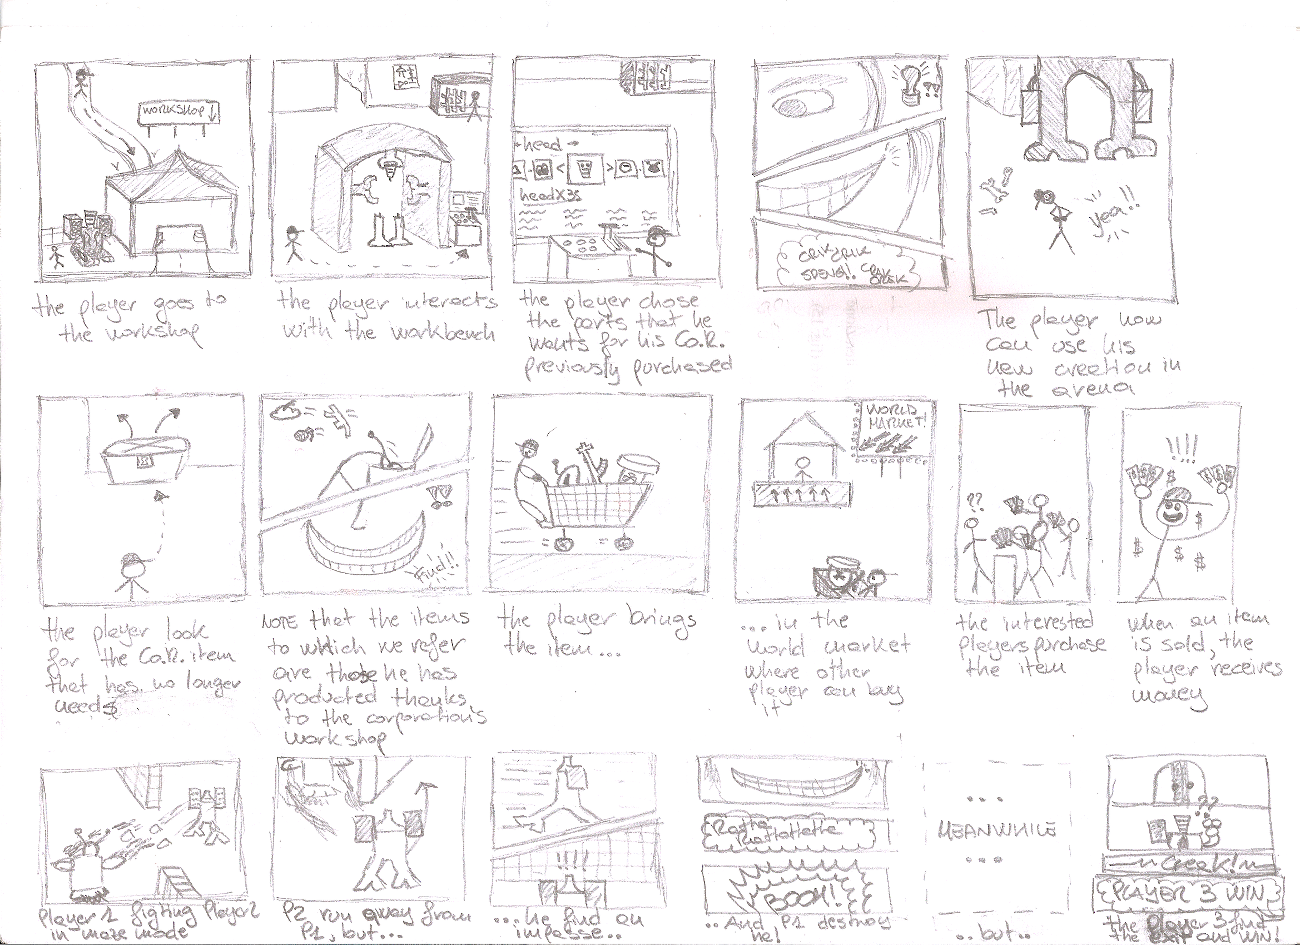 WORKSHOP
the player goes to
the workshop
the player interacts
with the workbench
head
headX3s
the player chose
the parts that he
wants for his Co.R.
previously purchased
CRIK CRIK
yea!!
The player now
can use his
new creation in
the arena
the player look
for the Co.R. item
that has no longer
needs
Find!!
NOTE that the items
to which we refer
are those he has
producted thanks
to the corporation's
workshop
the player brings
the item...
WORLD
MARKET!
...in the
world market
where other
player can buy
it
??
the interested
players purchase
the item
!!!!
$ $ $ $ $
when an item
is sold, the
player receives
money
Player 1 figting Player 2
in maze mode
P2 run away from
P1, but...
!!!!
...he find an
impasse...
BOOM!
..And P1 destroy
he!
...
MEANWHILE
...
..but..
??
Creek!
PLAYER 3 WIN
the player 3 find
the exit and WIN!